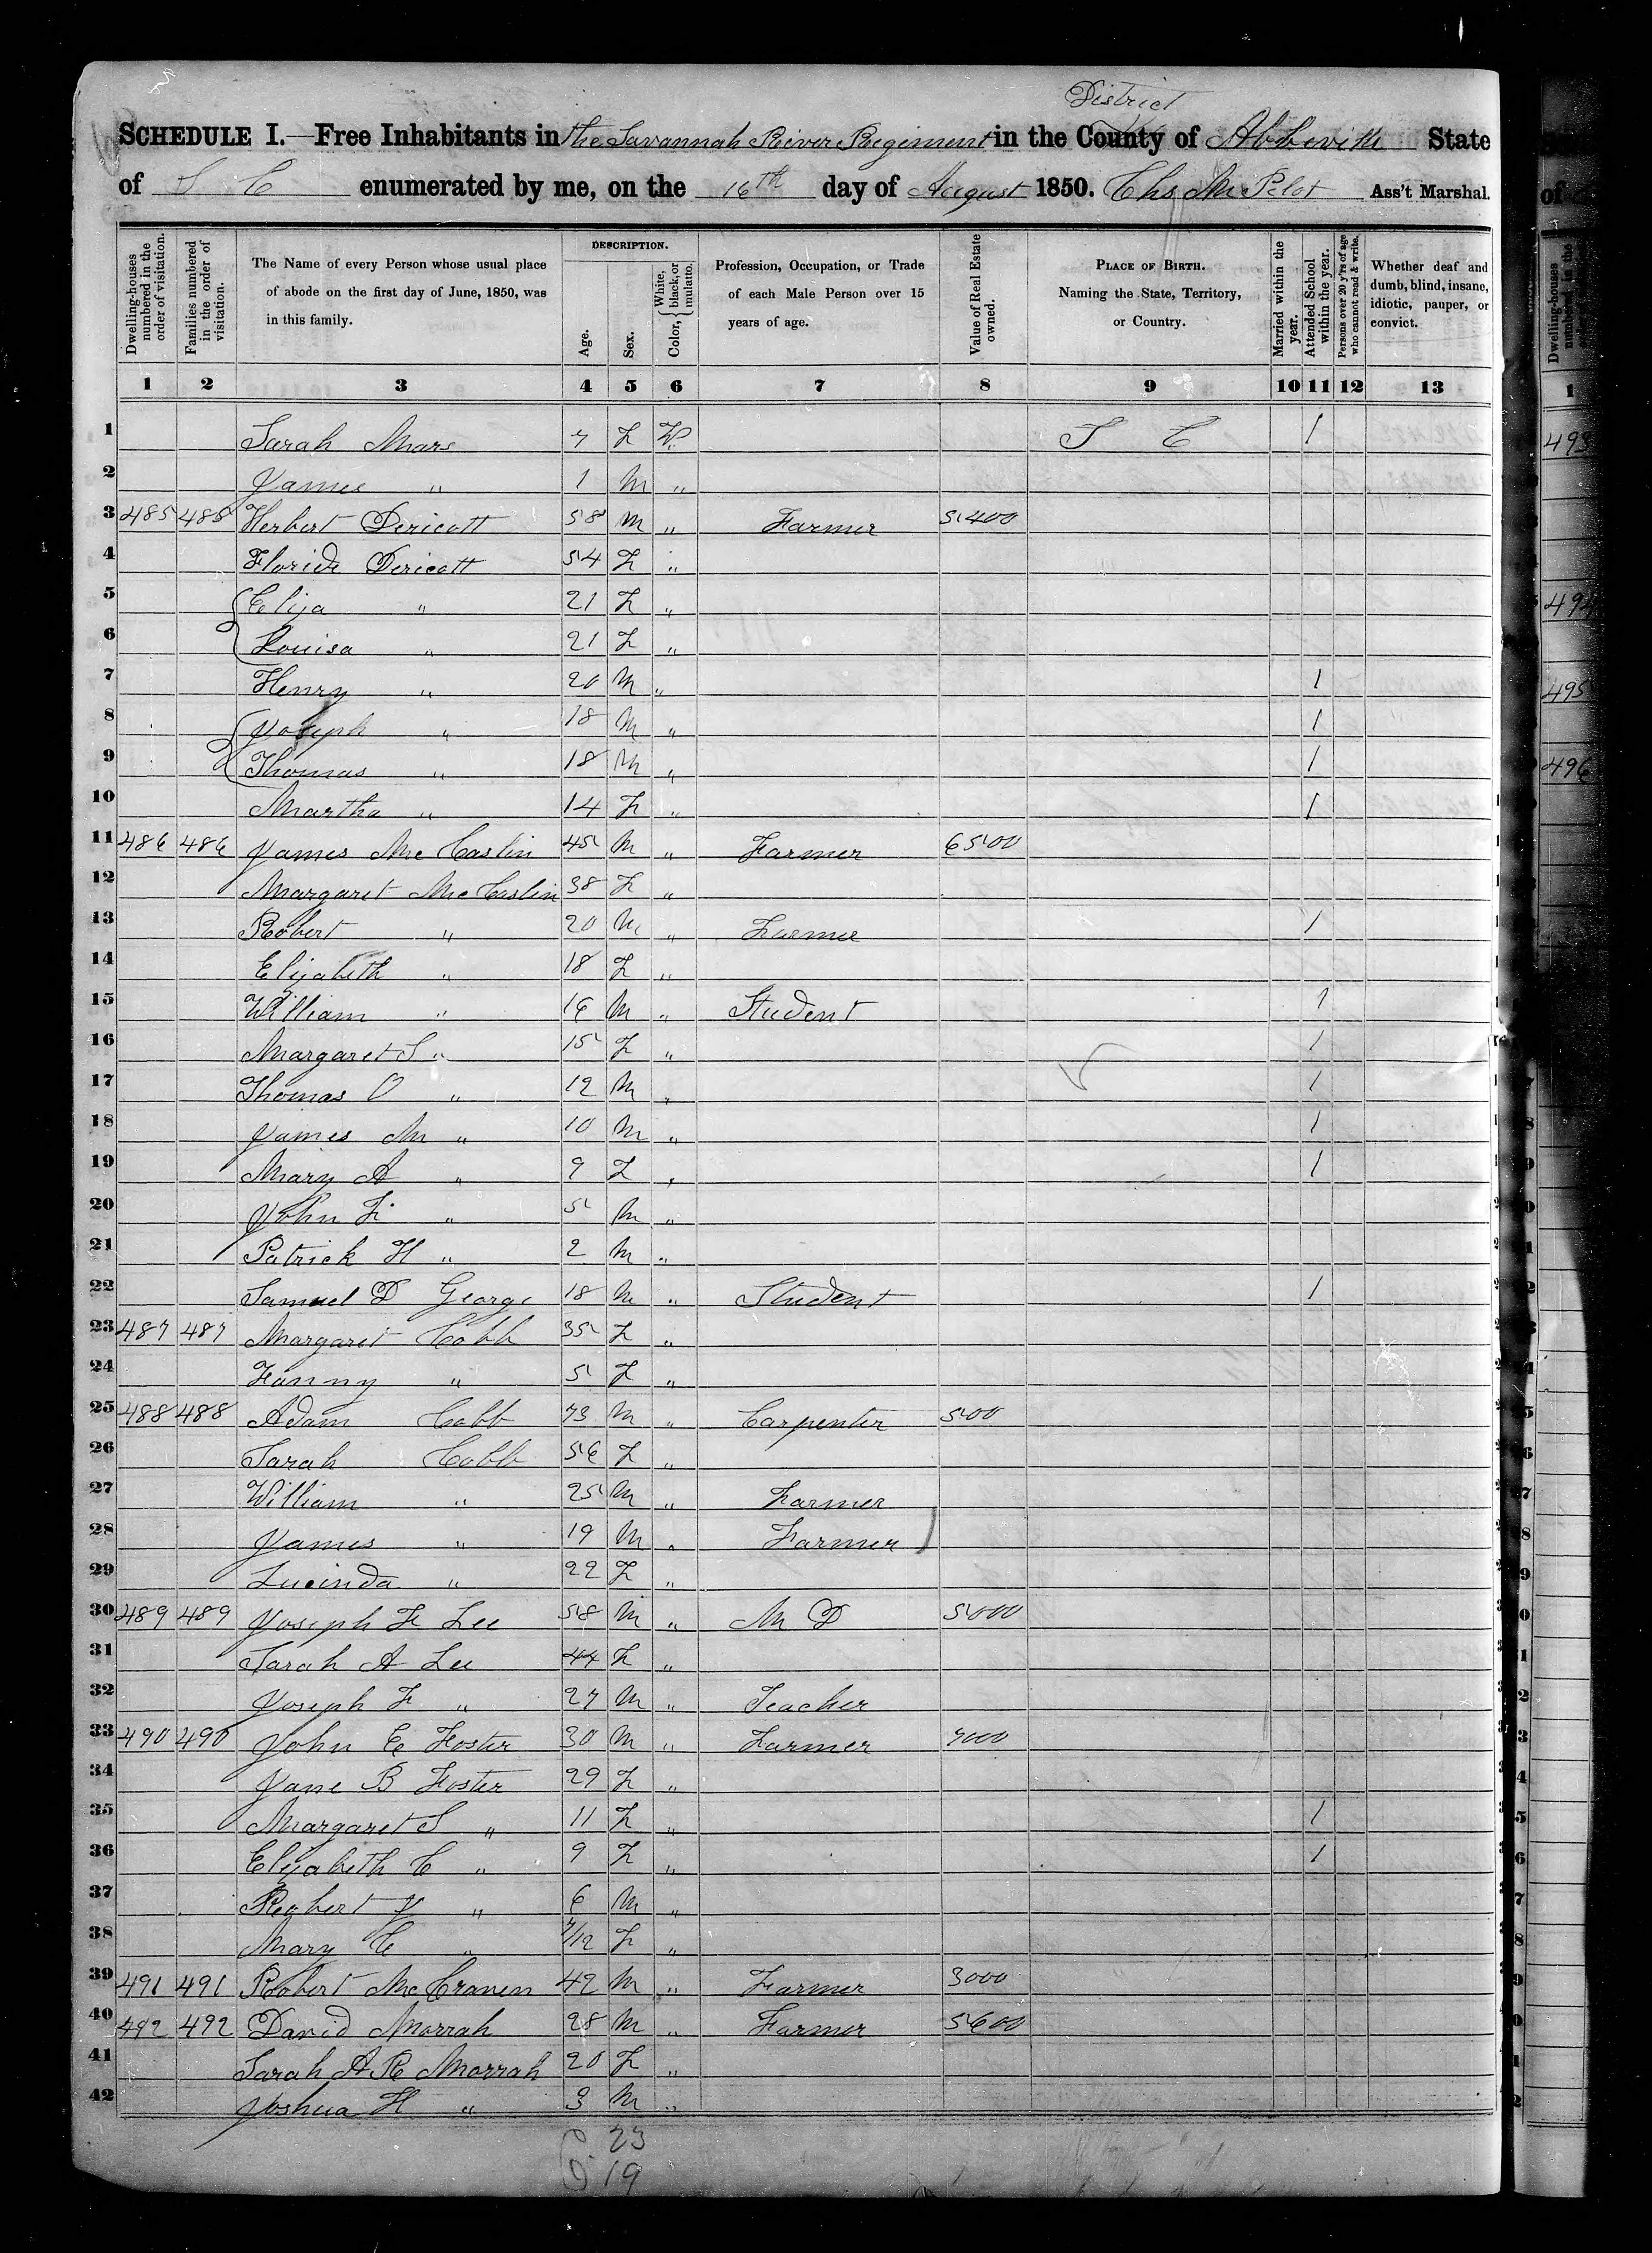 District
SCHEDULE I.—Free Inhabitants in the Savannah River Regiment in the County of Abbeville State
of S C enumerated by me, on the 16th day of August 1850. Chs M Pelot Ass't Marshal.
Dwelling-houses numbered in the order of visitation.
Families numbered in the order of visitation.
The Name of every Person whose usual place of abode on the first day of June, 1850, was in this family.
DESCRIPTION.
Age.
Sex.
Color, { White, black, or mulatto.
Profession, Occupation, or Trade of each Male Person over 15 years of age.
Value of Real Estate owned.
PLACE OF BIRTH. Naming the State, Territory, or Country.
Married within the year.
Attended School within the year.
Persons over 20 y'rs of age who cannot read & write.
Whether deaf and dumb, blind, insane, idiotic, pauper, or convict.
1 2 3 4 5 6 7 8 9 10 11 12 13
1 Sarah Mars 7 F W S C 1
2 James " 1 M "
3 485 485 Herbert Dericott 58 M " Farmer 5400
4 Floride Dericott 54 F "
5 Eliza " 21 F "
6 Louisa " 21 F "
7 Henry " 20 M " 1
8 Joseph " 18 M " 1
9 Thomas " 18 M " 1
10 Martha " 14 F " 1
11 486 486 James McCaslin 45 M " Farmer 6500
12 Margaret McCaslin 38 F "
13 Robert " 20 M " Farmer 1
14 Elizabeth " 18 F "
15 William " 16 M " Student 1
16 Margaret S " 15 F " 1
17 Thomas O " 12 M " 1
18 James M " 10 M " 1
19 Mary A " 9 F " 1
20 John F " 5 M "
21 Patrick H " 2 M "
22 Samuel D George 18 M " Student 1
23 487 487 Margaret Cobb 35 F "
24 Fanny " 5 F "
25 488 488 Adam Cobb 73 M " Carpenter 500
26 Sarah Cobb 56 F "
27 William " 25 M " Farmer
28 James " 19 M " Farmer
29 Lucinda " 22 F "
30 489 489 Joseph F Lee 58 M " M D 5000
31 Sarah A Lee 44 F "
32 Joseph F " 27 M " Teacher
33 490 490 John E Foster 30 M " Farmer 7000
34 Jane B Foster 29 F "
35 Margaret S " 11 F " 1
36 Elizabeth C " 9 F " 1
37 Robert J " 6 M "
38 Mary C " 7/12 F "
39 491 491 Robert McCraven 42 M " Farmer 3000
40 492 492 David Morrah 28 M " Farmer 5600
41 Sarah A R Morrah 20 F "
42 Joshua H " 3 M "
23
19
1
493
494
495
496